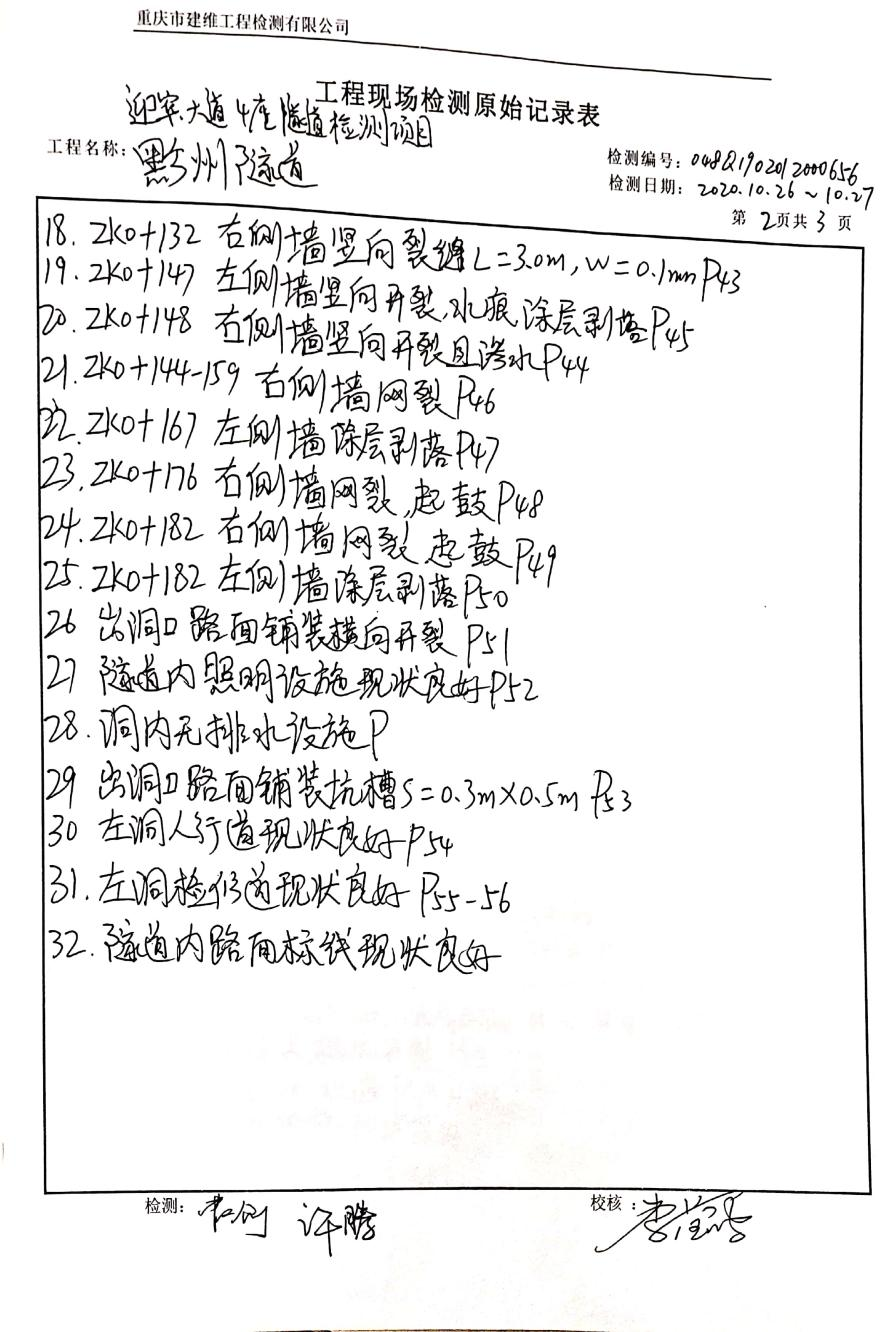 重庆市建维工程检测有限公司
工程现场检测原始记录表
迎宾大道4座隧道检测项目
工程名称：黔州隧道
检测编号：048Q1902012000656
检测日期：2020.10.26～10.27
第2页共3页
18. ZK0+132 右侧墙竖向裂缝L=3.0m,W=0.1mm P43
19. ZK0+147 左侧墙竖向开裂,水痕,涂层剥落P45
20. ZK0+148 右侧墙竖向开裂且渗水P44
21. ZK0+144-159 右侧墙网裂P46
22. ZK0+167 左侧墙涂层剥落P47
23. ZK0+176 右侧墙网裂,起鼓P48
24. ZK0+182 右侧墙网裂,起鼓P49
25. ZK0+182 左侧墙涂层剥落P50
26 出洞口路面铺装横向开裂 P51
27 隧道内照明设施现状良好P52
28. 洞内无排水设施P
29 出洞口路面铺装坑槽S=0.3m×0.5m P53
30 左洞人行道现状良好P54
31. 左洞检修道现状良好 P55-56
32. 隧道内路面标线现状良好
检测： 许腾
校核：